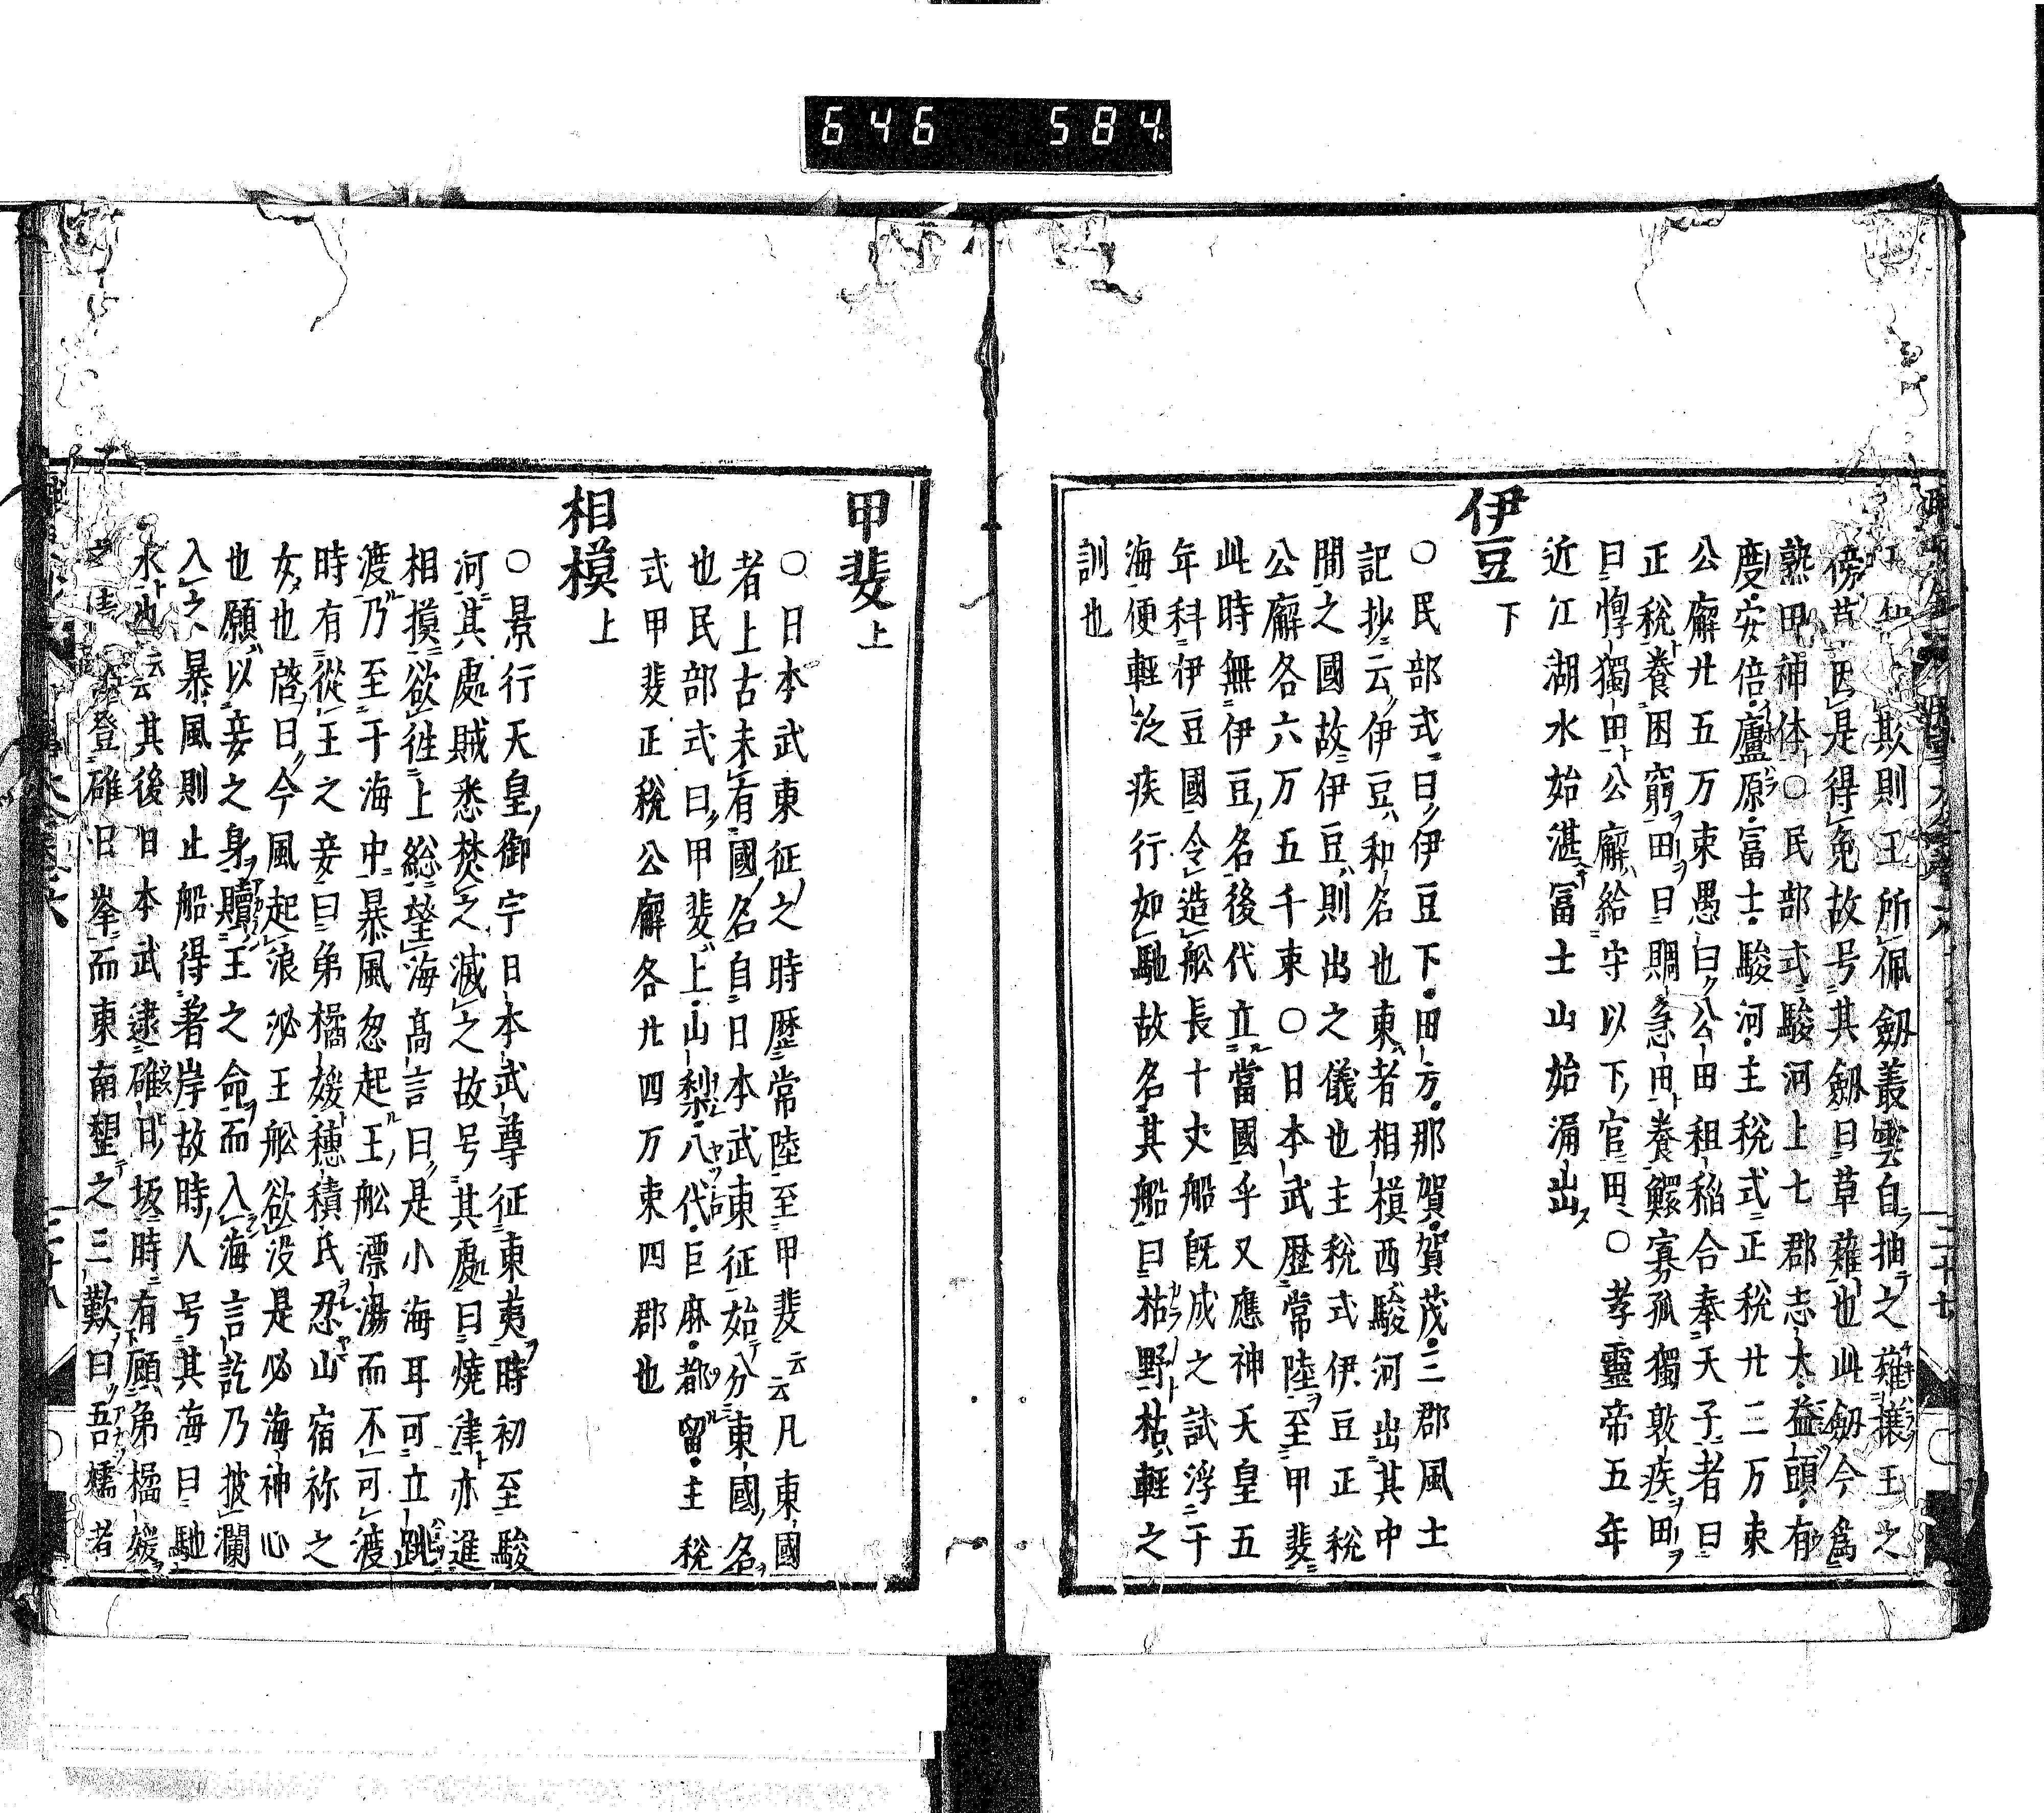 646 584
欺則王所佩劔叢雲自抽之薙攘王之
傍草因是得免故号其劔曰草薙也此劔今為
熱田神体○民部式駿河上七郡志太益頭有
度安倍廬原富士駿河主稅式正稅廿二万束
公廨廿五万束愚曰公田租稲合奉天子者曰
正稅養困窮田曰賙急田養鰥寡孤獨敦疾田
曰惸獨田公廨給守以下官田○孝靈帝五年
近江湖水始湛冨士山始涌出
伊豆下
○民部式曰伊豆下田方那賀賀茂三郡風土
記抄云伊豆和名也東者相模西駿河出其中
間之國故伊豆則出之儀也主稅式伊豆正稅
公廨各六万五千束○日本武歴常陸至甲斐
此時無伊豆名後代立當國乎又應神天皇五
年科伊豆國令造舩長十丈船既成之試浮于
海便軽泛疾行如馳故名其船曰枯野枯軽之
訓也
甲斐上
○日本武東征之時歴常陸至甲斐云云凡東國
者上古未有國名自日本武東征始分東國名
也民部式曰甲斐上山梨八代巨麻都留主稅
式甲斐正稅公廨各廿四万束四郡也
相模上
○景行天皇御宇日本武尊征東夷時初至駿
河其處賊悉焚之滅之故号其處曰燒津亦進
相摸欲徃上総望海高言曰是小海耳可立跳
渡乃至于海中暴風忽起王舩漂蕩而不可渡
時有從王之妾曰弟橘媛穗積氏忍山宿祢之
女也啓曰今風起浪泌王舩欲没是必海神心
也願以妾之身贖王之命而入海言訖乃披瀾
入之暴風則止船得著岸故時人号其海曰馳
水也云云其後日本武逮碓日坂時有顧弟橘媛
之登碓日峯而東南望之三歎曰吾嬬者